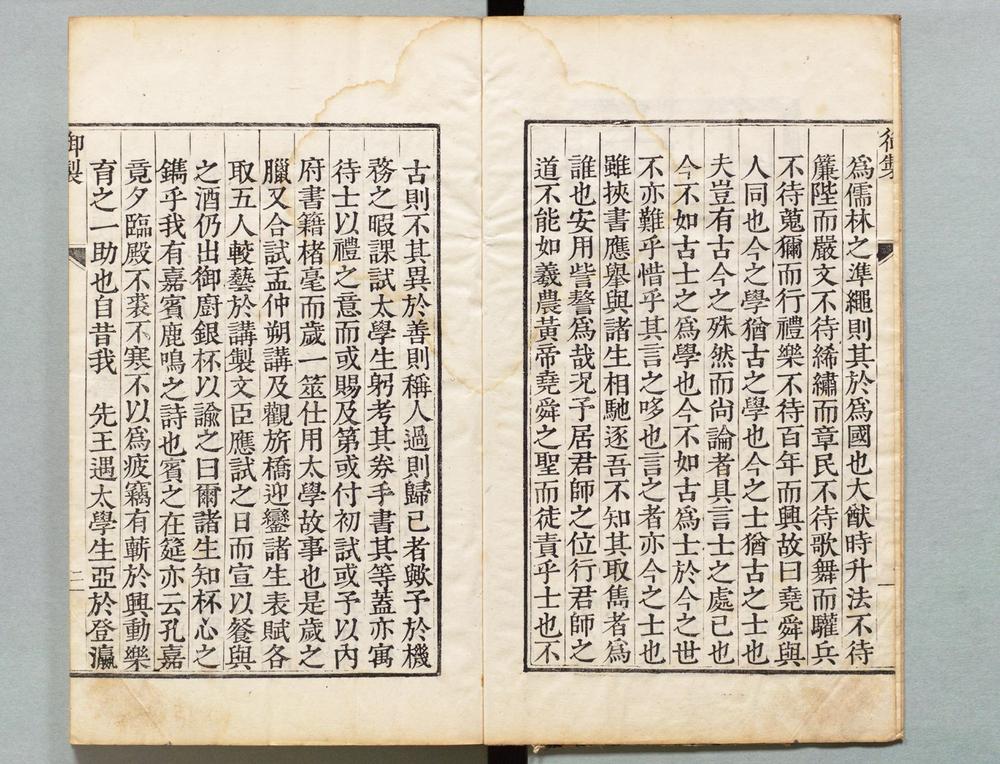 爲儒林之準繩則其於爲國也大猷時升法不待
簾陛而嚴文不待絺繡而章民不待歌舞而驩兵
不待蒐獮而行禮樂不待百年而興故曰堯舜與
人同也今之學猶古之學也今之士猶古之士也
夫豈有古今之殊然而尙論者具言士之處己也
今不如古士之爲學也今不如古爲士於今之世
不亦難乎惜乎其言之哆也言之者亦今之士也
雖挾書應擧與諸生相馳逐吾不知其取雋者爲
誰也安用訾謷爲哉况予居君師之位行君師之
道不能如羲農黃帝堯舜之聖而徒責乎士也不
御製
一
古則不其異於善則稱人過則歸己者歟予於機
務之暇課試太學生躬考其券手書其等蓋亦寓
待士以禮之意而或賜及第或付初試或予以內
府書籍楮毫而歲一筮仕用太學故事也是歲之
臘又合試孟仲朔講及觀旂橋迎鑾諸生表賦各
取五人較藝於講製文臣應試之日而宣以餐與
之酒仍出御廚銀杯以諭之曰爾諸生知杯心之
鐫乎我有嘉賓鹿鳴之詩也賓之在筵亦云孔嘉
竟夕臨殿不裘不寒不以爲疲竊有蘄於興動樂
育之一助也自昔我　先王遇太學生亞於登瀛
御製
二